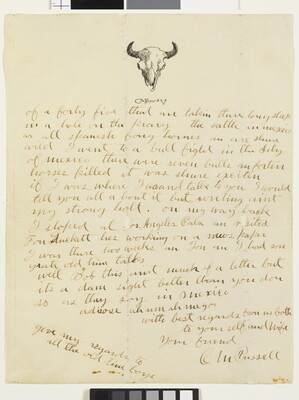 of a forty five that are taken thare long sleep
in a hole on the prary the cattle in mexico
ar all spanish long hornes an are shure
wild I went to a bull fight in the City
of mexico there were seven bulls an forten
horses killed it was shure exciten
if I was where I usand talk to you I would
tell you all about it but writing aint
my strong holt. on my way back
I stoped at Los Angeles Cala an visited
Fon hes working on a news papre
I was there two weeks an Fon an I had some
grate old time talks
well Bob this aint much of a letter but
its a dam sight better than you don
so as they say in Mexico
adiose
with best regards from us both
to your self and Wife
Your friend
C M Russell
give my regards to
all the old time boys